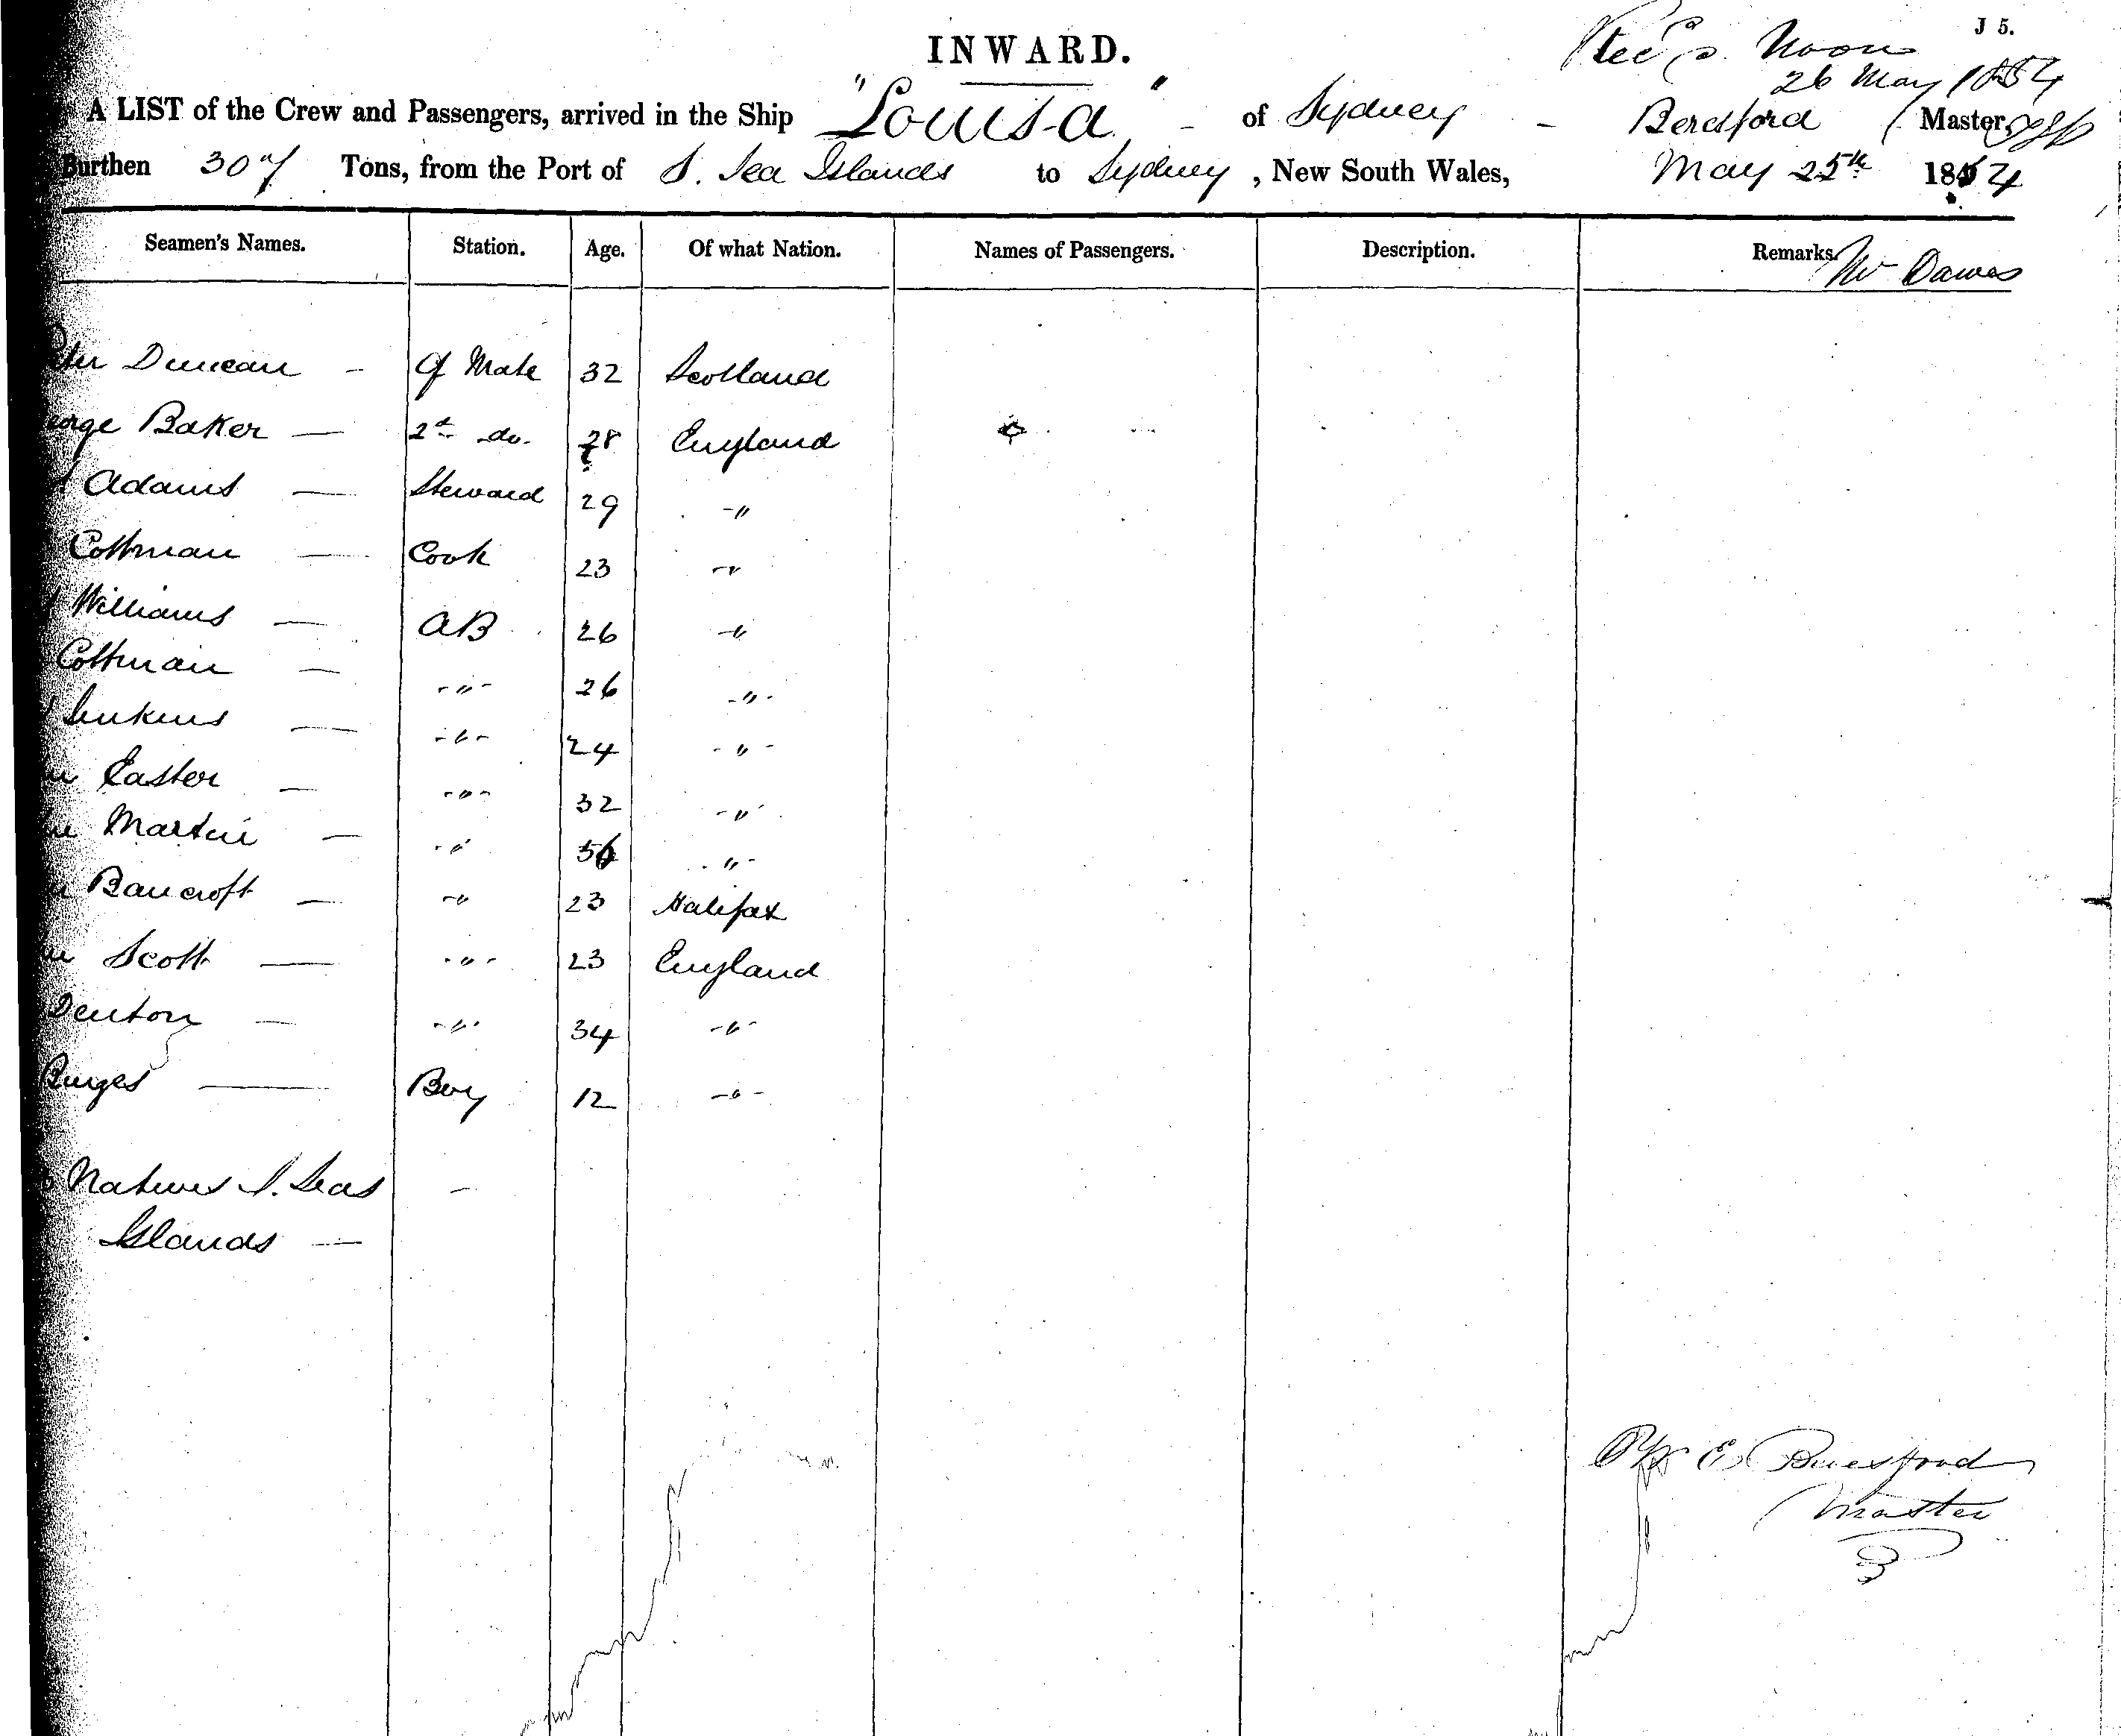 J 5.
INWARD.
Noon
26 May 1854
A LIST of the Crew and Passengers, arrived in the Ship "Louisa" of Sydney - Beresford Master,
Burthen Tons, from the Port of S. Sea Islands to Sydney, New South Wales, May 25th 1854
Seamen's Names. Station. Age. Of what Nation. Names of Passengers. Description. Remarks.
Mr Dawes
Duncan - Cf Mate 32 Scotland
Baker — 2d do. 28 England
Adams — Steward 29 -"
Cottman — Cook 23 -"
Williams — AB 26 -"
Cottman — -"- 26 -"-
Jenkins — -"- 24 -"-
Easter — -"- 32 -"-
Martin — -"- 56 -"-
Bancroft — -" 23 Halifax
Scott — -"- 23 England
Denton — -"- 34 -"-
Burges — Boy 12 -"-
Natives S. Seas -
Islands —
E Beresford
Master